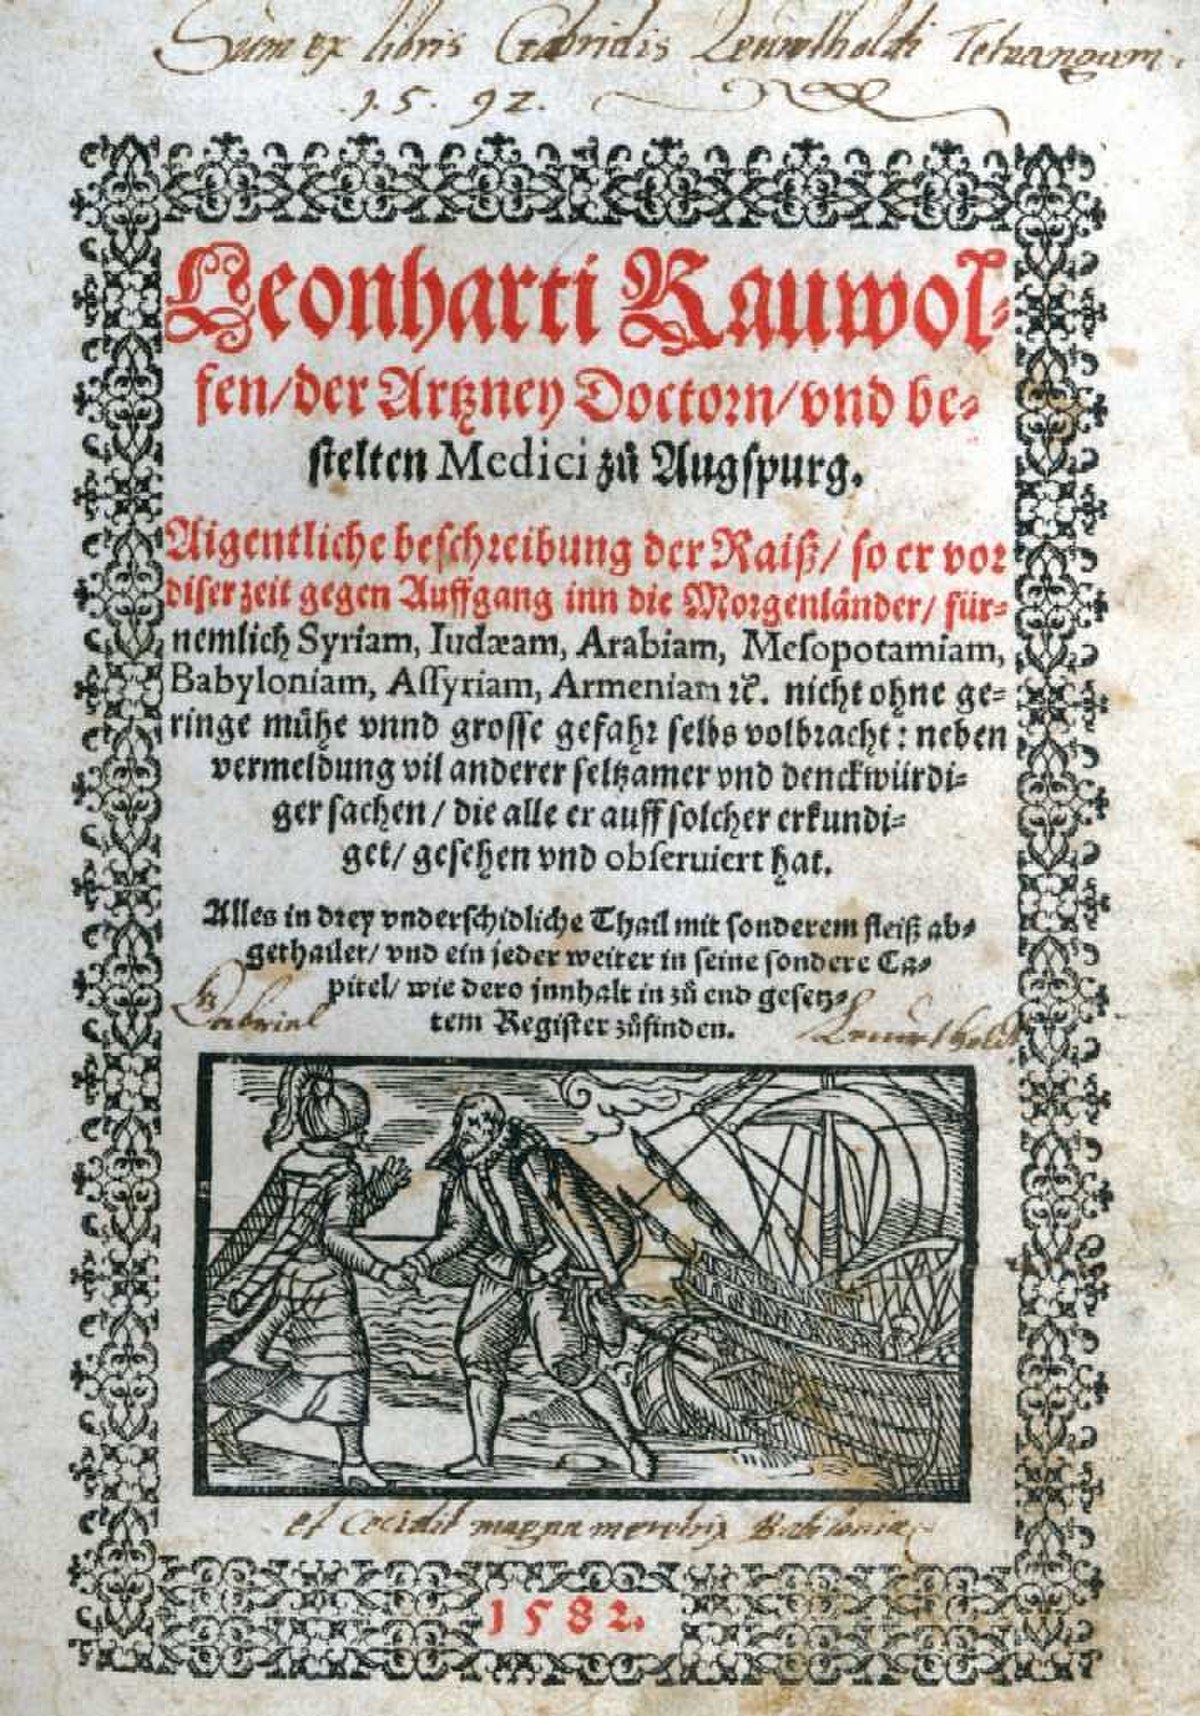 Sum ex libris Gabrielis
1592.
Leonharti Rauwol⸗
fen/ der Artzney Doctorn/ vnd be⸗
stelten Medici zů Augspurg.
Aigentliche beschreibung der Raiß/ so er vor
diser zeit gegen Auffgang inn die Morgenländer/ für⸗
nemlich Syriam, Iudæam, Arabiam, Mesopotamiam,
Babyloniam, Assyriam, Armeniam ꝛc. nicht ohne ge⸗
ringe mühe vnnd grosse gefahr selbs volbracht: neben
vermeldung vil anderer seltzamer vnd denckwürdi⸗
ger sachen/ die alle er auff solcher erkundi⸗
get/ gesehen vnd obseruiert hat.
Alles in drey vnderschidliche Thail mit sonderem fleiß ab⸗
gethailet/ vnd ein jeder weiter in seine sondere Ca⸗
pitel/ wie dero jnnhalt in zů end gesetz⸗
tem Register zůfinden.
Gabriel
et cecidit magna meretrix Babilonia
1582.